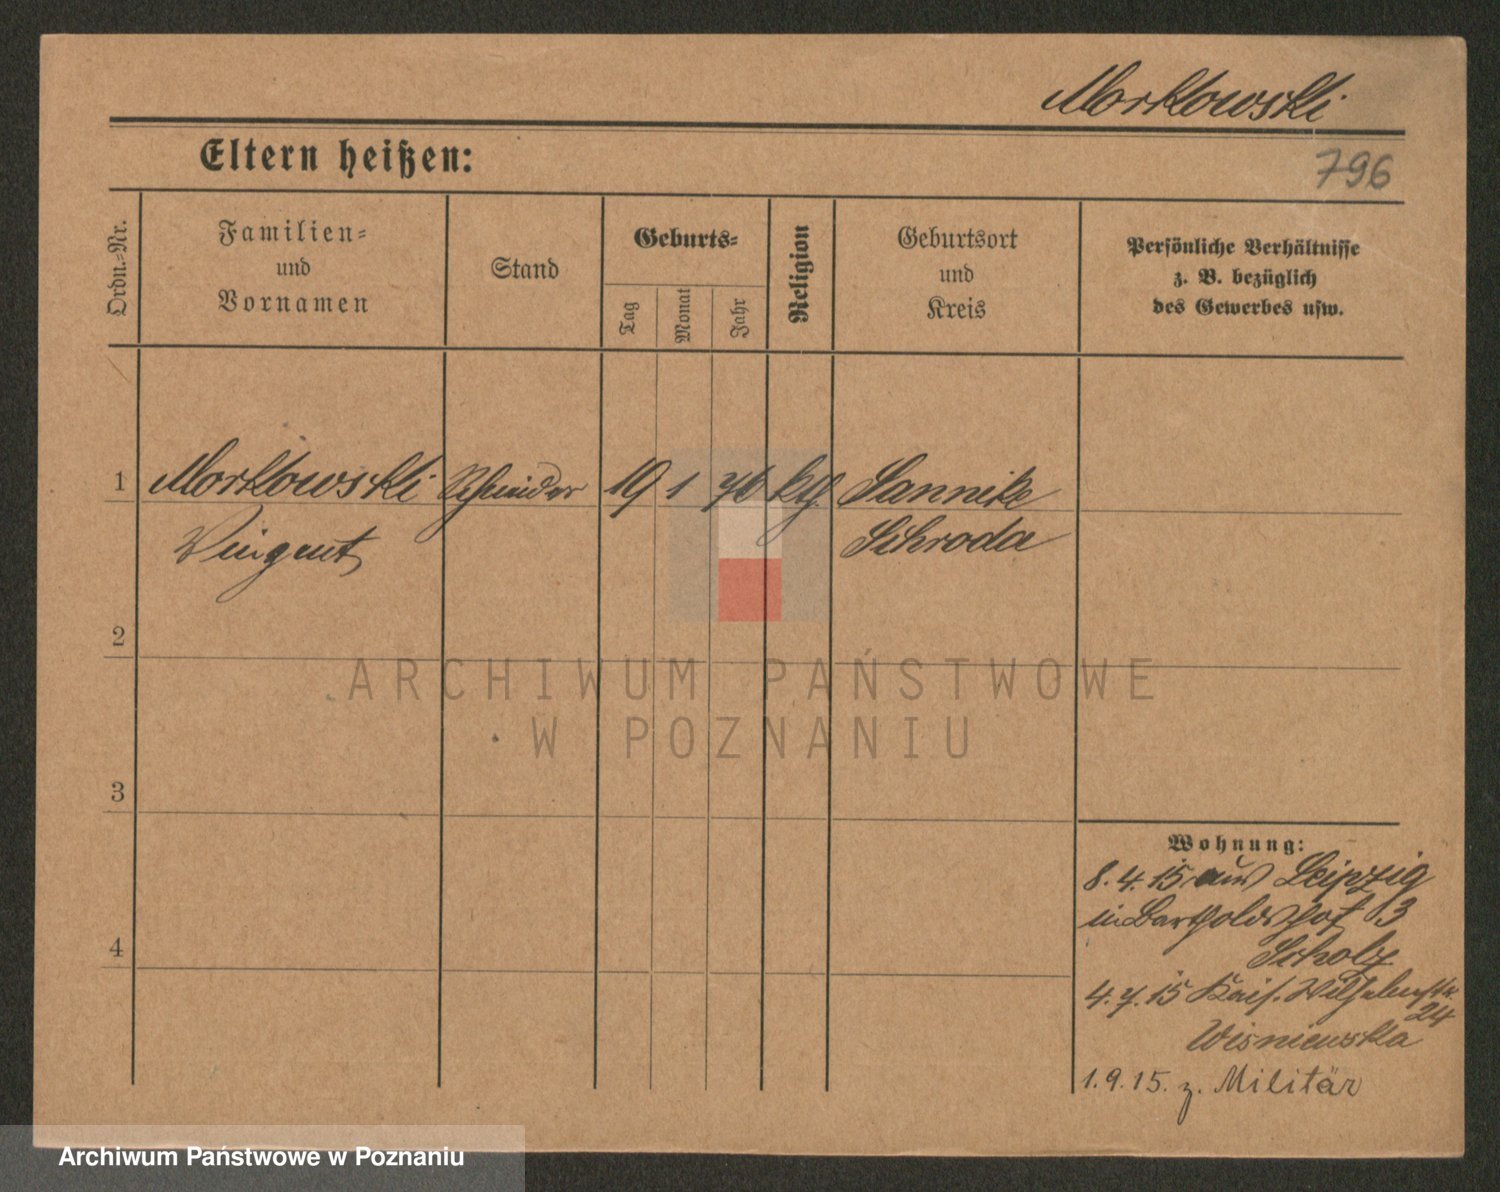 Morkowski
Eltern heißen:
796
Ordn.-Nr.
Familien-
und
Vornamen
Stand
Geburts-
Tag
Monat
Jahr
Religion
Geburtsort
und
Kreis
Persönliche Verhältnisse
z. B. bezüglich
des Gewerbes usw.
1 Morkowski Schneider 19 1 76 kth. Sannike
Vinzent Schroda
2
3
4
Wohnung:
8.4.15 aus Leipzig
in Bartholdshof 3
Scholz
4.7.15 Kais. Wilhelmstr.
24
Wisniewska
1.9.15. z. Militär
ARCHIWUM PAŃSTWOWE
W POZNANIU
Archiwum Państwowe w Poznaniu